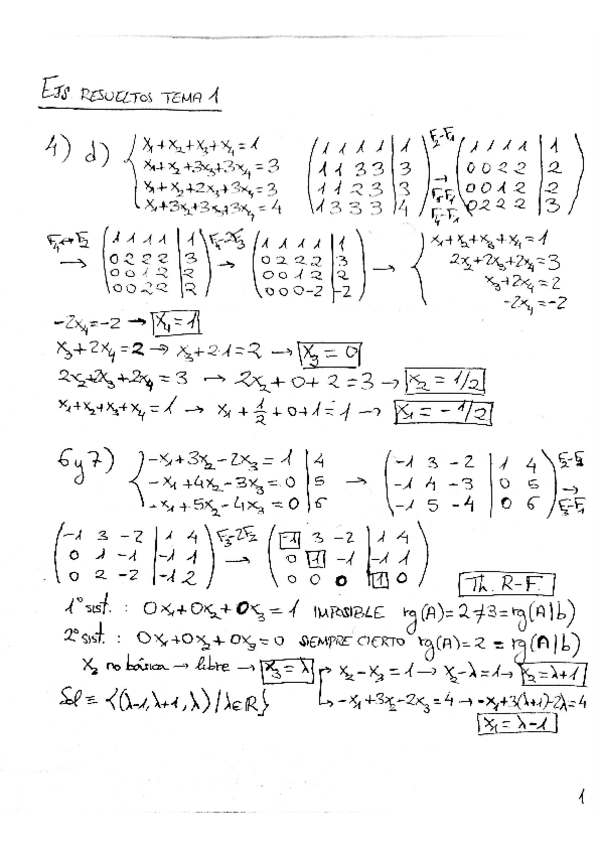 EJS RESUELTOS TEMA 1
4) d) { x₁+x₂+x₃+x₄=1
x₁+x₂+3x₃+3x₄=3
x₁+x₂+2x₃+3x₄=3
x₁+3x₂+3x₃+3x₄=4
( 1 1 1 1 | 1
1 1 3 3 | 3
1 1 2 3 | 3
1 3 3 3 | 4 )
F₂-F₁
→
F₃-F₁
F₄-F₁
( 1 1 1 1 | 1
0 0 2 2 | 2
0 0 1 2 | 2
0 2 2 2 | 3 )
F₄↔F₂
→
( 1 1 1 1 | 1
0 2 2 2 | 3
0 0 1 2 | 2
0 0 2 2 | 2 )
F₄-2F₃
→
( 1 1 1 1 | 1
0 2 2 2 | 3
0 0 1 2 | 2
0 0 0 -2 | -2 )
→ { x₁+x₂+x₃+x₄=1
2x₂+2x₃+2x₄=3
x₃+2x₄=2
-2x₄=-2
-2x₄=-2 → x₄=1
x₃+2x₄=2 → x₃+2·1=2 → x₃=0
2x₂+2x₃+2x₄=3 → 2x₂+0+2=3 → x₂=1/2
x₁+x₂+x₃+x₄=1 → x₁+1/2+0+1=1 → x₁=-1/2
6 y 7) { -x₁+3x₂-2x₃=1 | 4
-x₁+4x₂-3x₃=0 | 5
-x₁+5x₂-4x₃=0 | 6
→
( -1 3 -2 | 1 4
-1 4 -3 | 0 5
-1 5 -4 | 0 6 )
F₂-F₁
→
F₃-F₁
( -1 3 -2 | 1 4
0 1 -1 | -1 1
0 2 -2 | -1 2 )
F₃-2F₂
→
( -1 3 -2 | 1 4
0 1 -1 | -1 1
0 0 0 | 1 0 )
Th. R-F.
1º sist. : 0x₁+0x₂+0x₃=1 IMPOSIBLE rg(A)=2≠3=rg(A|b)
2º sist. : 0x₁+0x₂+0x₃=0 SIEMPRE CIERTO rg(A)=2=rg(A|b)
x₃ no básica → libre → x₃=λ → x₂-x₃=1 → x₂-λ=1 → x₂=λ+1
Sol ≡ {(λ-1, λ+1, λ) / λ∈R} → -x₁+3x₂-2x₃=4 → -x₁+3(λ+1)-2λ=4
x₁=λ-1
1